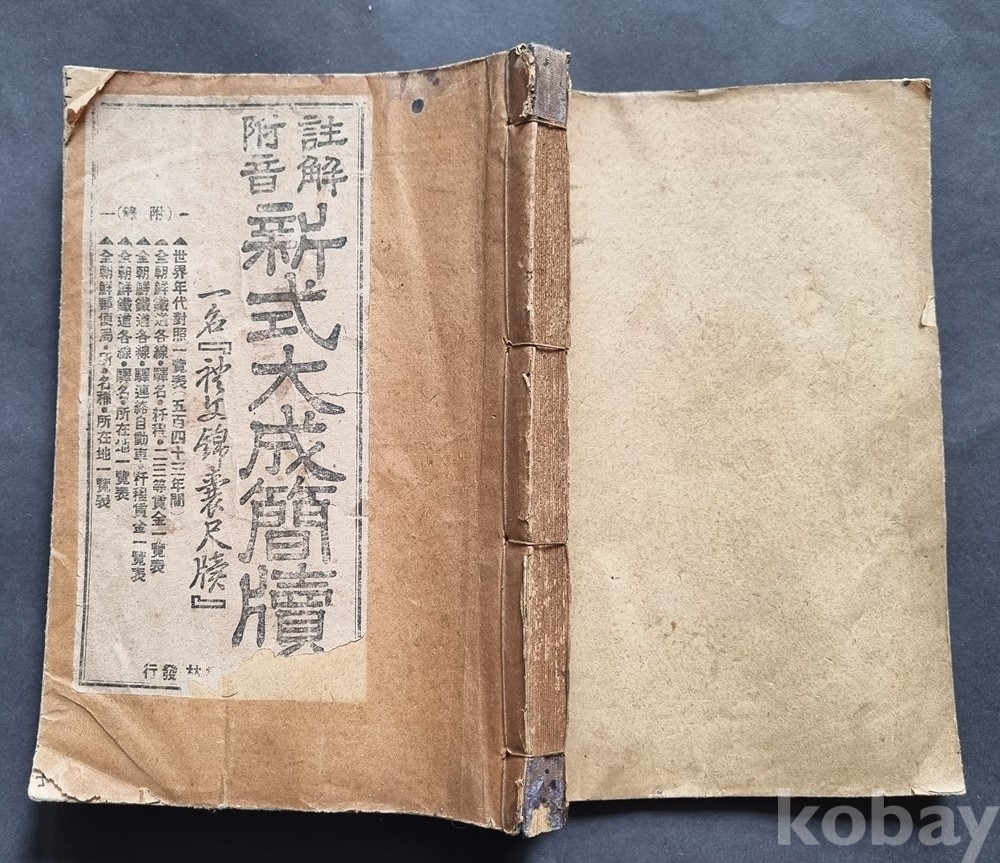 註解
附音
新式大成簡牘
一名『禮文錦囊尺牘』
一(附錄)一
▲世界年代對照一覽表(五百四十三年間)
▲全朝鮮鐵道各線•驛名•粁程•二三等賃金一覽表
▲全朝鮮鐵道各線•驛連絡自動車•粁程賃金一覽表
▲全朝鮮鐵道各線•驛名•所在地一覽表
▲全朝鮮郵便局•所•名稱•所在地一覽表
林發行
kobay